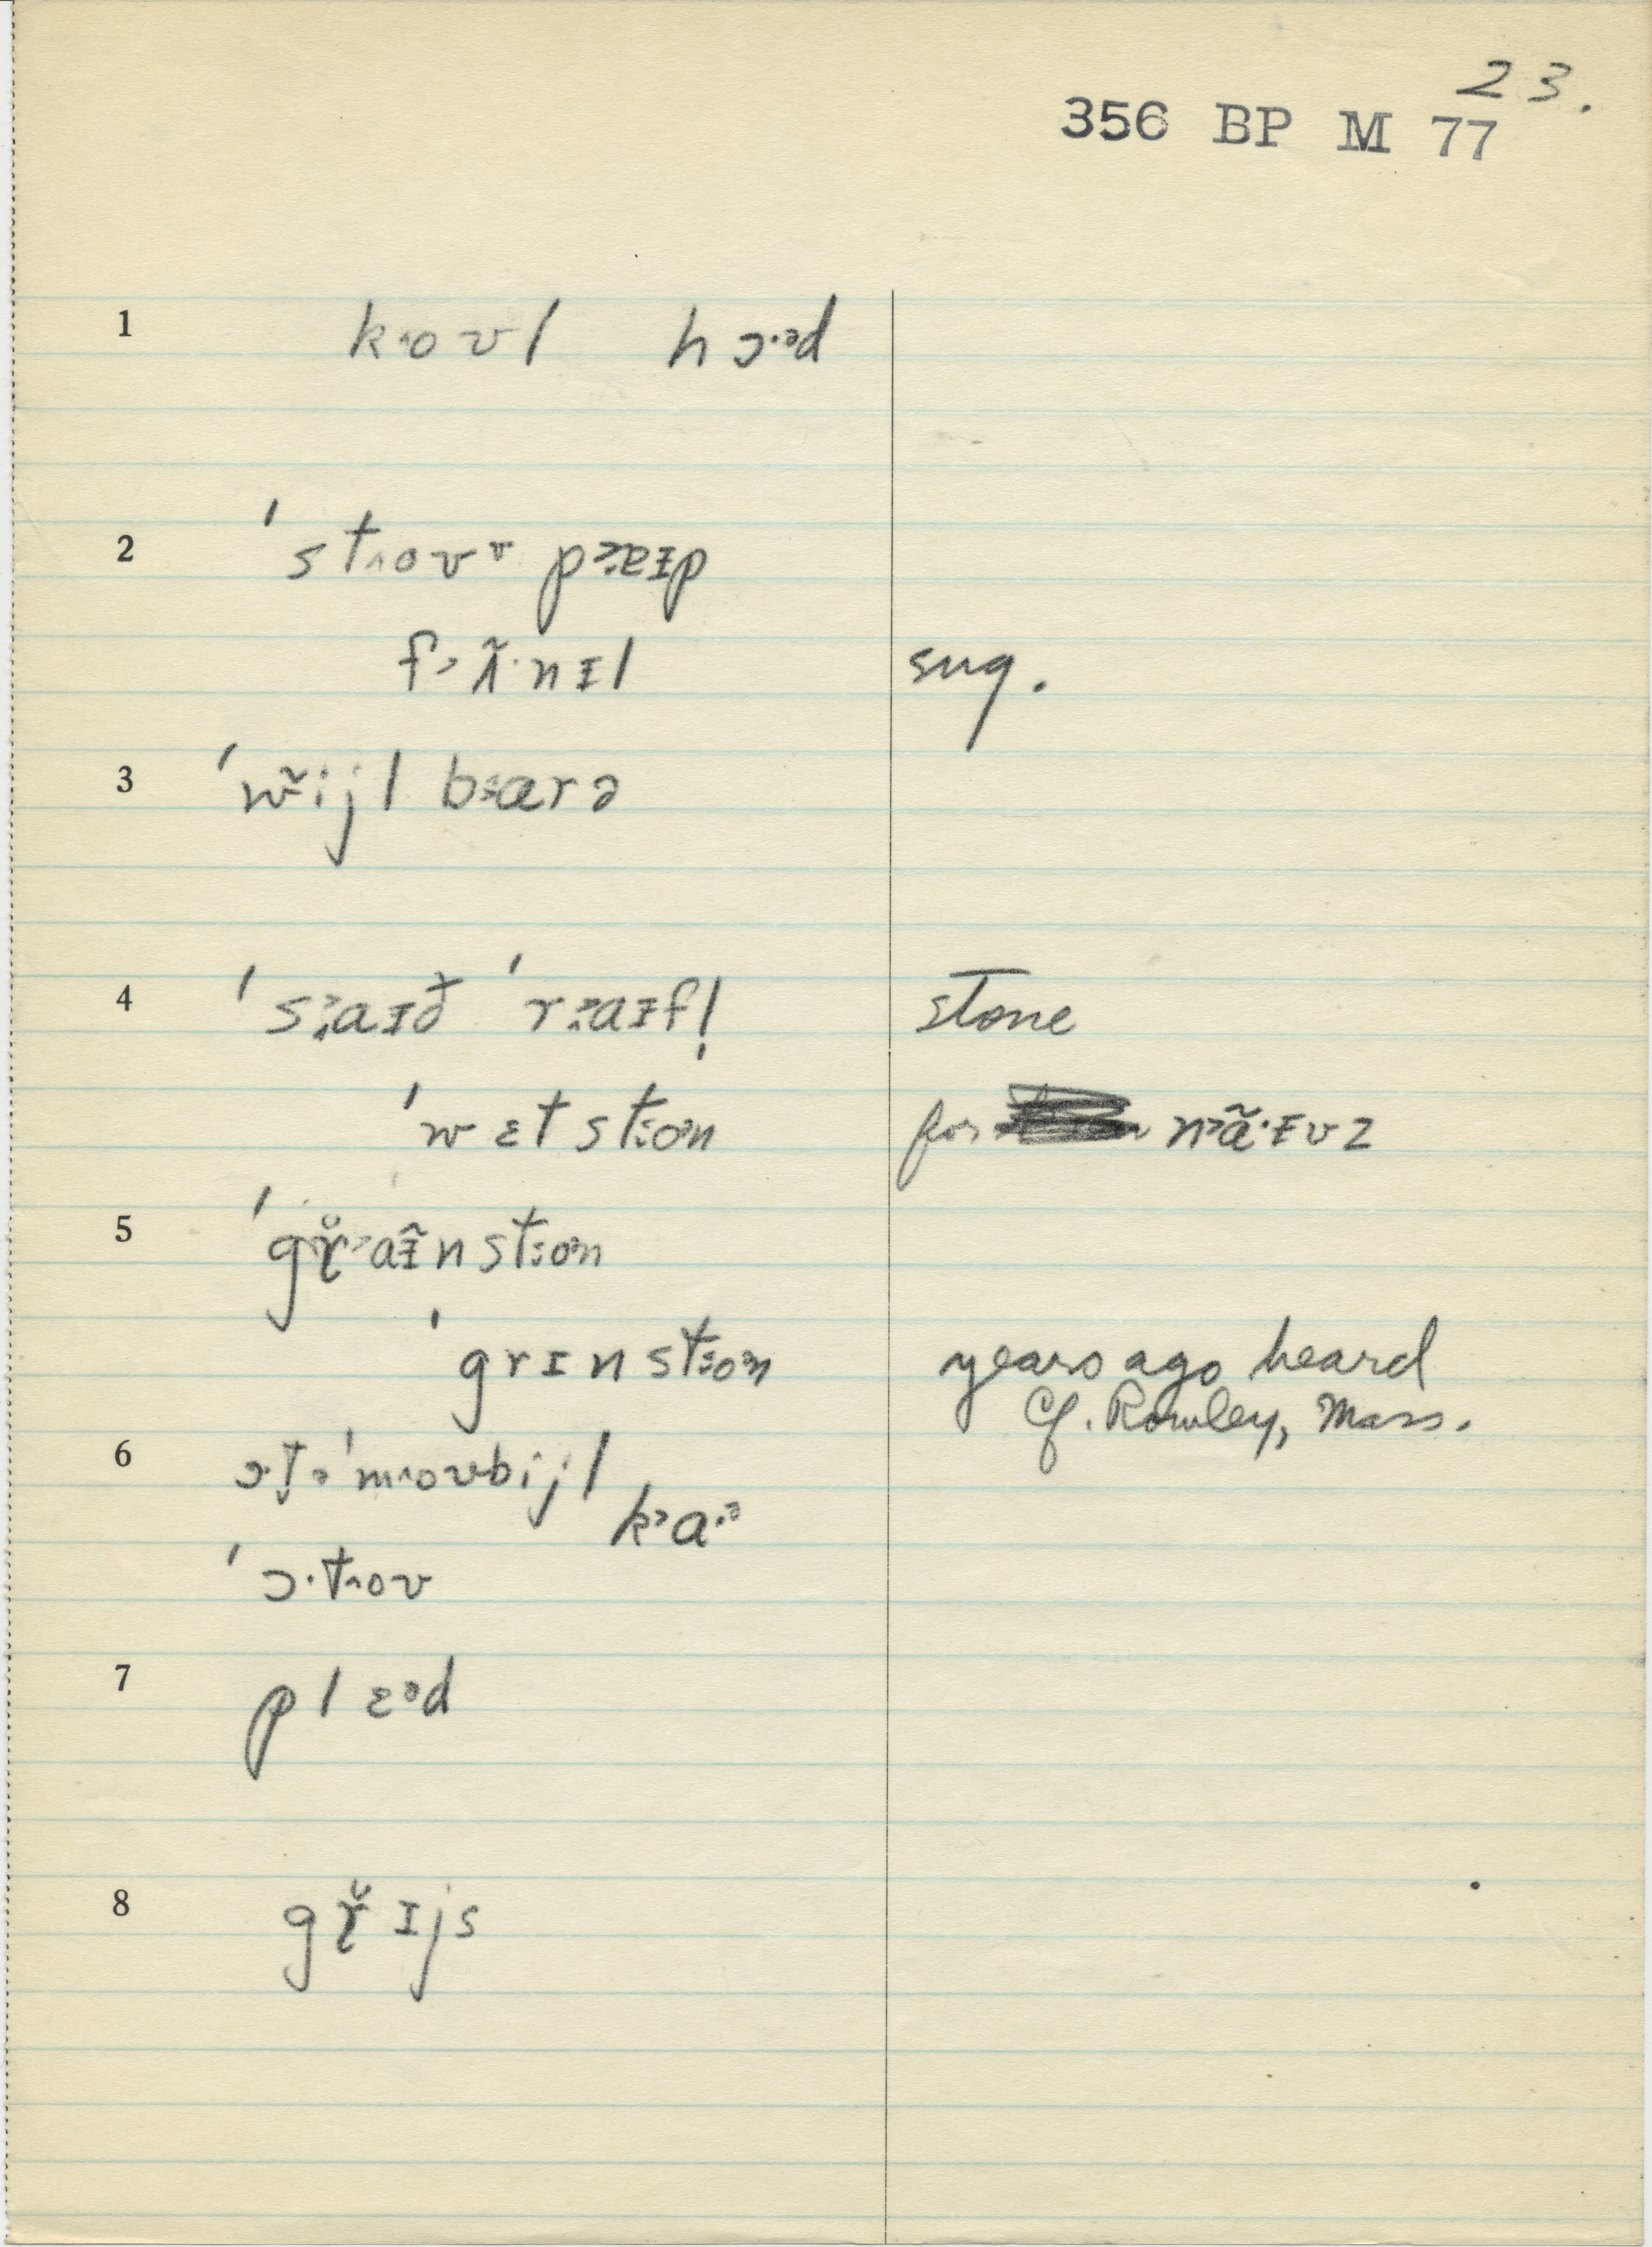 23.
356 BP M 77
1 k˄oʊl hɔ·əd
2 ˈst˄oʊv pa·ɪp
f˃ʌ̃·nɪl sug.
3 ˈw̃ijl b˃arə
4 ˈs˃aɪð ˈr˃aɪfl̩ stone
ˈwɛt st˃oən for n˃ã·ɪvz
5 ˈgɹ̆˃aɪ̃nst˃oən
ˈgrɪnst˃oən years ago heard
Cf. Rowley, Mass.
6 ɔ·t̬əˈm˄oʊbijl
k˃a·ə
ˈɔ·t˄oʊ
7 plɛəd
8 gɹ̆ɪjs